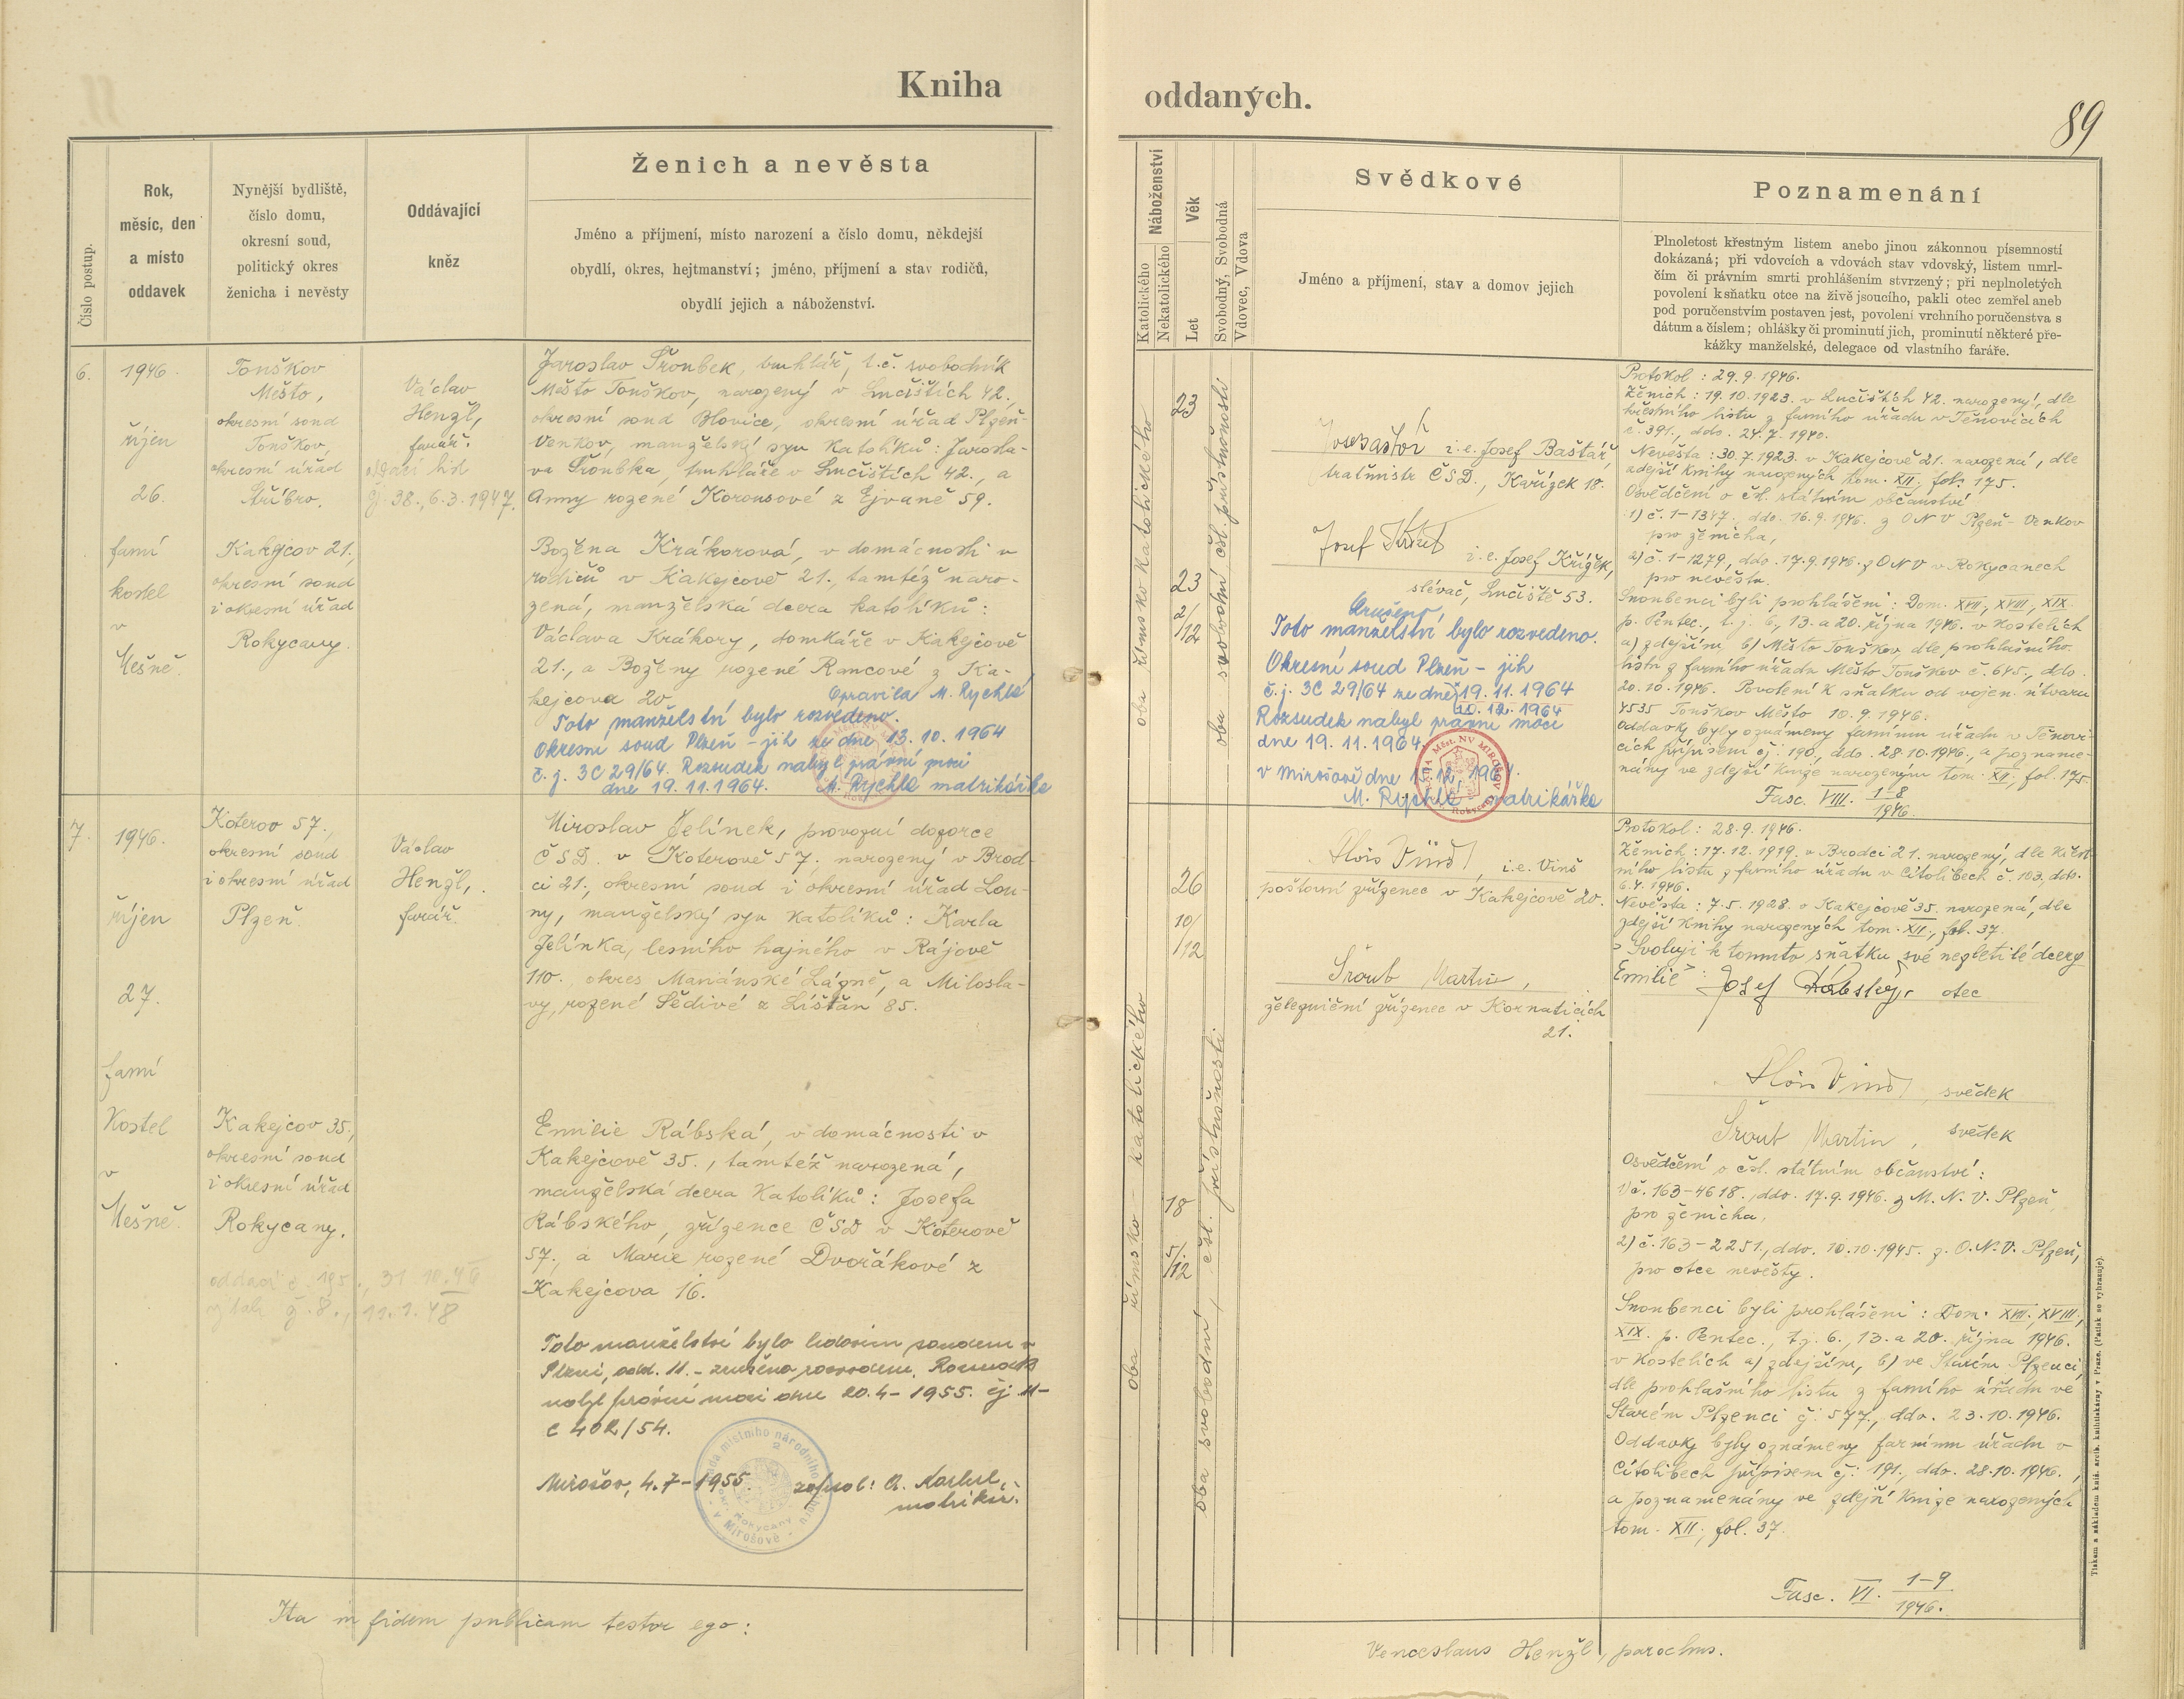 Kniha
oddaných.
89
Číslo postup.
Rok,
měsíc, den
a místo
oddavek
Nynější bydliště,
číslo domu,
okresní soud,
politický okres
ženicha i nevěsty
Oddávající
kněz
Ženich a nevěsta
Jméno a příjmení, místo narození a číslo domu, někdejší
obydlí, okres, hejtmanství; jméno, příjmení a stav rodičů,
obydlí jejich a náboženství.
Náboženství
Katolického
Nekatolického
Věk
Let
Svobodný, Svobodná
Vdovec, Vdova
Svědkové
Jméno a příjmení, stav a domov jejich
Poznamenání
Plnoletost křestným listem anebo jinou zákonnou písemností
dokázaná; při vdovcích a vdovách stav vdovský, listem umrl-
čím či právním smrti prohlášením stvrzený; při neplnoletých
povolení k sňatku otce na živě jsoucího, pakli otec zemřel aneb
pod poručenstvím postaven jest, povolení vrchního poručenstva s
dátum a číslem; ohlášky či prominutí jich, prominutí některé pře-
kážky manželské, delegace od vlastního faráře.
6.
1946.
říjen
26.
farní
kostel
v
Mešně.
Touškov
Město,
okresní soud
Touškov,
okresní úřad
Stříbro.
Kakejcov 21.,
okresní soud
i okresní úřad
Rokycany.
Václav
Henžl,
farář.
38., 6.3.1947.
Jaroslav Šroubek, truhlář, t.č. svobodník
Město Touškov, narozený v Lučištích 42.,
okresní soud Blovice, okresní úřad Plzeň-
Venkov, manželský syn katolíků: Jarosla-
va Šroubka, truhláře v Lučištích 42., a
Anny rozené Korousové z 59.
Božena Krákorová, v domácnosti u
rodičů v Kakejcově 21., tamtéž naro-
zená, manželská dcera katolíků:
Václava Krákory, domkáře v Kakejcově
21., a Boženy rozené Rancové z Ka-
kejcova 20.
Opravila M. Rychlá
Toto manželství bylo rozvedeno.
Okresní soud Plzeň - jih ze dne 13. 10. 1964
č. j. 3C 29/64. Rozsudek nabyl právní moci
dne 19. 11. 1964. M. Rychlá matrikářka
oba římsko katolického
23
23
2/12
oba svobodní čsl. příslušnosti
i.e. Josef Baštář,
tratmistr ČSD., Kařízek 18.
Josef Křížek
i.e. Josef Křížek,
slévač, Lučiště 53.
Zrušeno
Toto manželství bylo rozvedeno.
Okresní soud Plzeň - jih
č.j. 3C 29/64 ze dne 19. 11. 1964
10. 12. 1964
Rozsudek nabyl právní moci
dne 19. 11. 1964.
v Mirošově dne 12. 1964.
M. Rychlá matrikářka
Protokol: 29. 9. 1946.
Ženich: 19. 10. 1923. v Lučištích 42. narozený, dle
křestního listu z farního úřadu v Těnovicích
č. 391., ddo. 24. 7. 1940.
Nevěsta: 30. 7. 1923. v Kakejcově 21. narozená, dle
zdejší knihy narozených tom. XII., fol. 175.
Osvědčení o čsl. státním občanství
1) č. 1-1347., ddo. 16. 9. 1946. z ONV Plzeň-Venkov
pro ženicha,
2) č. 1-1279, ddo. 17. 9. 1946. z ONV v Rokycanech
pro nevěstu.
Snoubenci byli prohlášeni: Dom. XVII., XVIII., XIX.
p. Pentec., t.j. 6., 13. a 20. října 1946. v kostelích
a) zdejším, b) Město Touškov, dle prohlašního
listu z farního úřadu Město Touškov č. 645., ddo.
20. 10. 1946. Povolení k sňatku od vojen. útvaru
4535 Touškov Město 10. 9. 1946.
Oddavky byly oznámeny farnímu úřadu v Těnovi-
cích přípisem čj: 190., ddo. 28. 10. 1946., a pozname-
nány ve zdejší knize narozených tom. XII., fol. 175.
Fasc. VIII. 1-8/1946.
7.
1946.
říjen
27.
farní
Kostel
v
Mešně.
Koterov 57.,
okresní soud
i okresní úřad
Plzeň.
Kakejcov 35.,
okresní soud
i okresní úřad
Rokycany.
oddací č. 195., 31. 10. 46
č. 8., 11. 1. 48
Václav
Henžl,
farář.
Miroslav Jelínek, provozní dozorce
ČSD. v Koterově 57., narozený v Brod-
ci 21., okresní soud i okresní úřad Lou-
ny, manželský syn katolíků: Karla
Jelínka, lesního hajného v Rájově
110., okres Mariánské Lázně, a Milosla-
vy, rozené Šedivé z Lištan 85.
Emilie Rábská, v domácnosti v
Kakejcově 35., tamtéž narozená,
manželská dcera katolíků: Josefa
Rábského, zřízence ČSD v Koterově
57., a Marie rozené Dvořákové z
Kakejcova 16.
Toto manželství bylo lidovým soudem v
Plzni, odd. 11. - zrušeno rozvodem. Rozsudek
nabyl právní moci dne 20. 4. - 1955. čj 11-
C 402/54.
Mirošov, 4. 7 - 1955.
matrikář.
oba římsko - katolického
26
10/12
18
5/12
oba svobodní, čsl. příslušnosti
Alois Vinš, i.e. Vinš
poštovní zřízenec v Kakejcově 20.
Šroub Martin,
železniční zřízenec v Kornaticích
21.
Protokol: 28. 9. 1946.
Ženich: 17. 12. 1919. v Brodci 21. narozený, dle křest-
ního listu z farního úřadu v Cítolibech č. 103, ddo.
6. 4. 1946.
Nevěsta: 7. 5. 1928. v Kakejcově 35. narozená, dle
zdejší knihy narozených tom. XII., fol. 37.
"Svoluji k tomuto sňatku své nezletilé dcery
Emilie": Josef Rábský, otec
Alois Vinš, svědek
Šroub Martin, svědek
Osvědčení o čsl. státním občanství:
1) č. 163-4618., ddo. 17. 9. 1946. z M. N. V. Plzeň,
pro ženicha,
2) č. 163-2251., ddo. 10. 10. 1945. z. O. N. V. Plzeň,
pro otce nevěsty.
Snoubenci byli prohlášeni: Dom. XVII., XVIII.,
XIX. p. Pentec., t.j. 6., 13. a 20. října 1946.
v kostelích a) zdejším, b) ve Starém Plzenci,
dle prohlašního listu z farního úřadu ve
Starém Plzenci čj. 577., ddo. 23. 10. 1946.
Oddavky byly oznámeny farnímu úřadu v
Cítolibech přípisem čj: 191., ddo. 28. 10. 1946.,
a poznamenány ve zdejší knize narozených
tom. XII., fol. 37.
Fasc. VI. 1-9/1946.
Ita in fidem publicam testor ego:
Venceslaus Henžl, parochus.